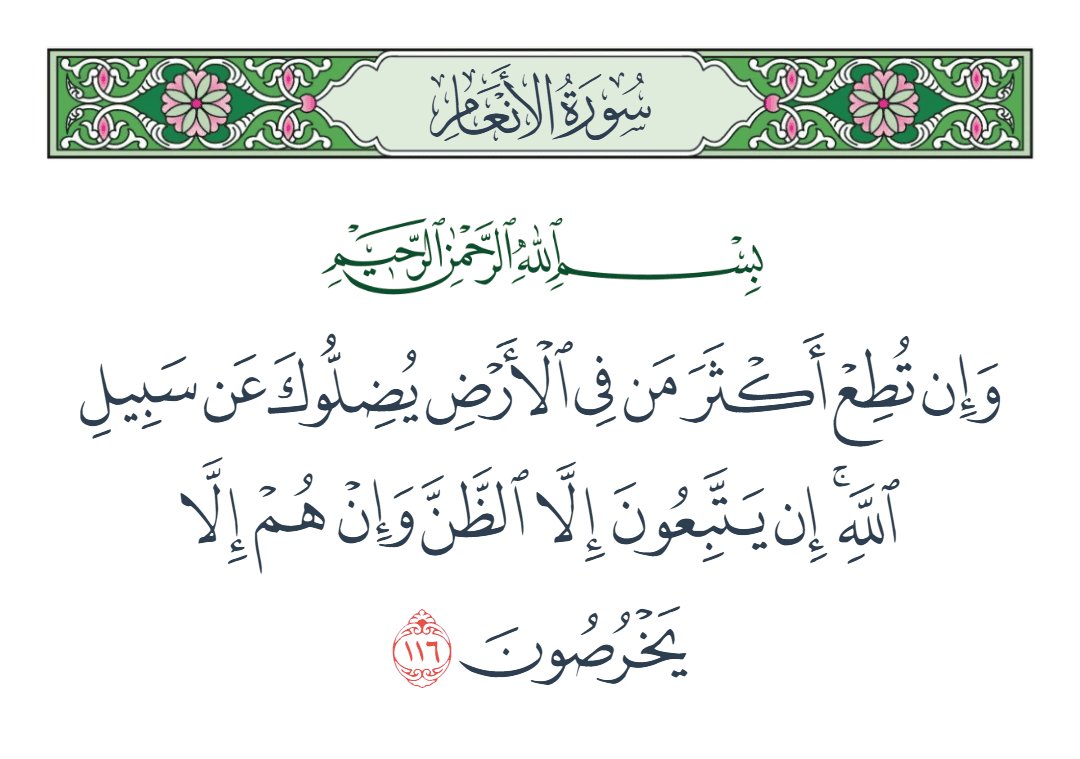 سُورَةُ الأَنْعَامِ
بِسْمِ ٱللَّهِ ٱلرَّحْمَٰنِ ٱلرَّحِيمِ
وَإِن تُطِعْ أَكْثَرَ مَن فِى ٱلْأَرْضِ يُضِلُّوكَ عَن سَبِيلِ
ٱللَّهِ ۚ إِن يَتَّبِعُونَ إِلَّا ٱلظَّنَّ وَإِنْ هُمْ إِلَّا
يَخْرُصُونَ ١١٦